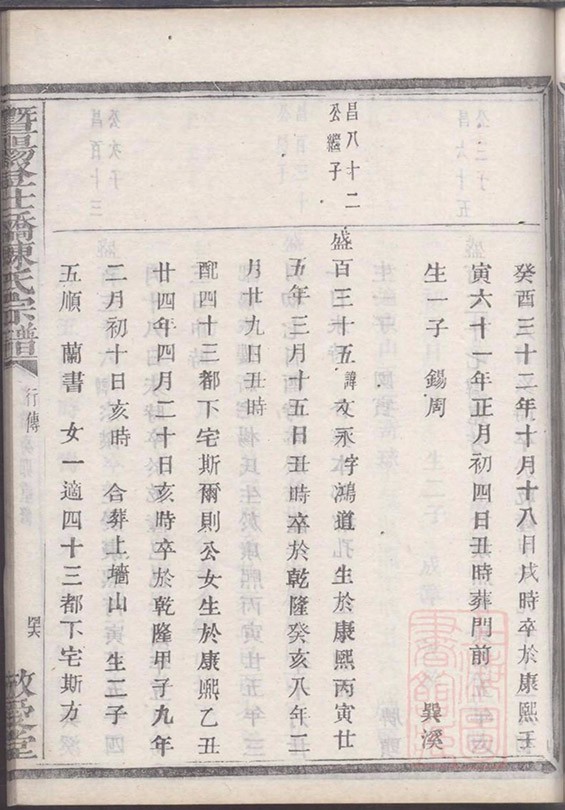 癸酉三十二年十月十八日戌時卒於康熙壬
寅六十一年正月初四日丑時葬門前 巽溪
生一子錫周
昌八十二
公繼子
盛百三十五諱文永字鴻道 生於康熙丙寅廿
五年三月十五日丑時卒於乾隆癸亥八年二
月廿九日丑時
配四十三都下宅斯爾則公女生於康熙乙丑
廿四年四月二十日亥時卒於乾隆甲子九年
二月初十日亥時 合葬上墻山 生二子 四
五順 蘭書 女一適四十三都下宅斯方
暨陽 陳氏宗譜
行傳
敬愛堂